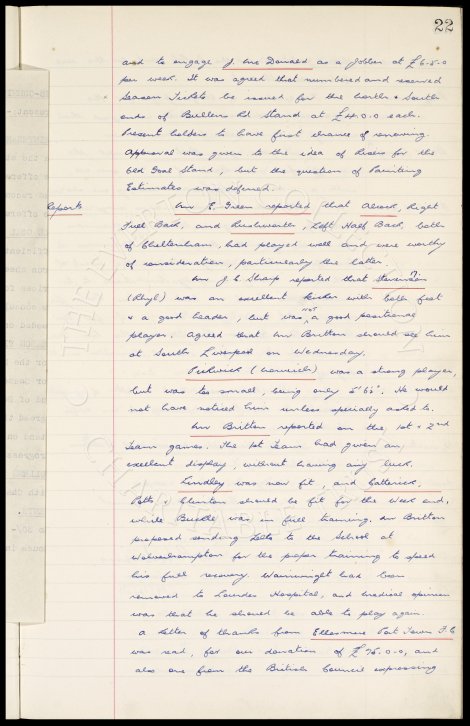 22
and to engage J. Mc Donald as a Jobber at £6-5-0
per week. It was agreed that numbered and reserved
Season Tickets be issued for the North & South
ends of Bullens Rd Stand at £4.0.0 each.
Present holders to have first chance of renewing.
Approval was given to the idea of Risers for the
Old Goal Stand, but the question of Painting
Estimates was deferred.
Reports
Mr E. Green reported that Alcock, Right
Full Back, and Rushworth, Left Half Back, both
of Cheltenham, had played well and were worthy
of consideration, particularly the latter.
Mr J. C. Sharp reported that Stevenson
(Rhyl) was an excellent kicker with both feet
& a good header, but was NOT a good positional
player. Agreed that Mr Britton should see him
at South Liverpool on Wednesday.
Pickwick (Norwich) was a strong player,
but was too small, being only 5' 6½". He would
not have noticed him unless specially asked to.
Mr Britton reported on the 1st & 2nd
Team games. The 1st Team had given an
excellent display, without having any luck.
Lindley was now fit, and Catterick,
Potts & Clinton should be fit for the week end,
while Buckle was in full training. Mr Britton
proposed sending Potts to the School at
Wolverhampton for the proper training to speed
his full recovery. Wainwright had been
removed to Lourdes Hospital, and medical opinion
was that he should be able to play again.
A letter of thanks from Ellesmere Port Town F.C
was read, for our donation of £75.0.0, and
also one from the British Council expressing